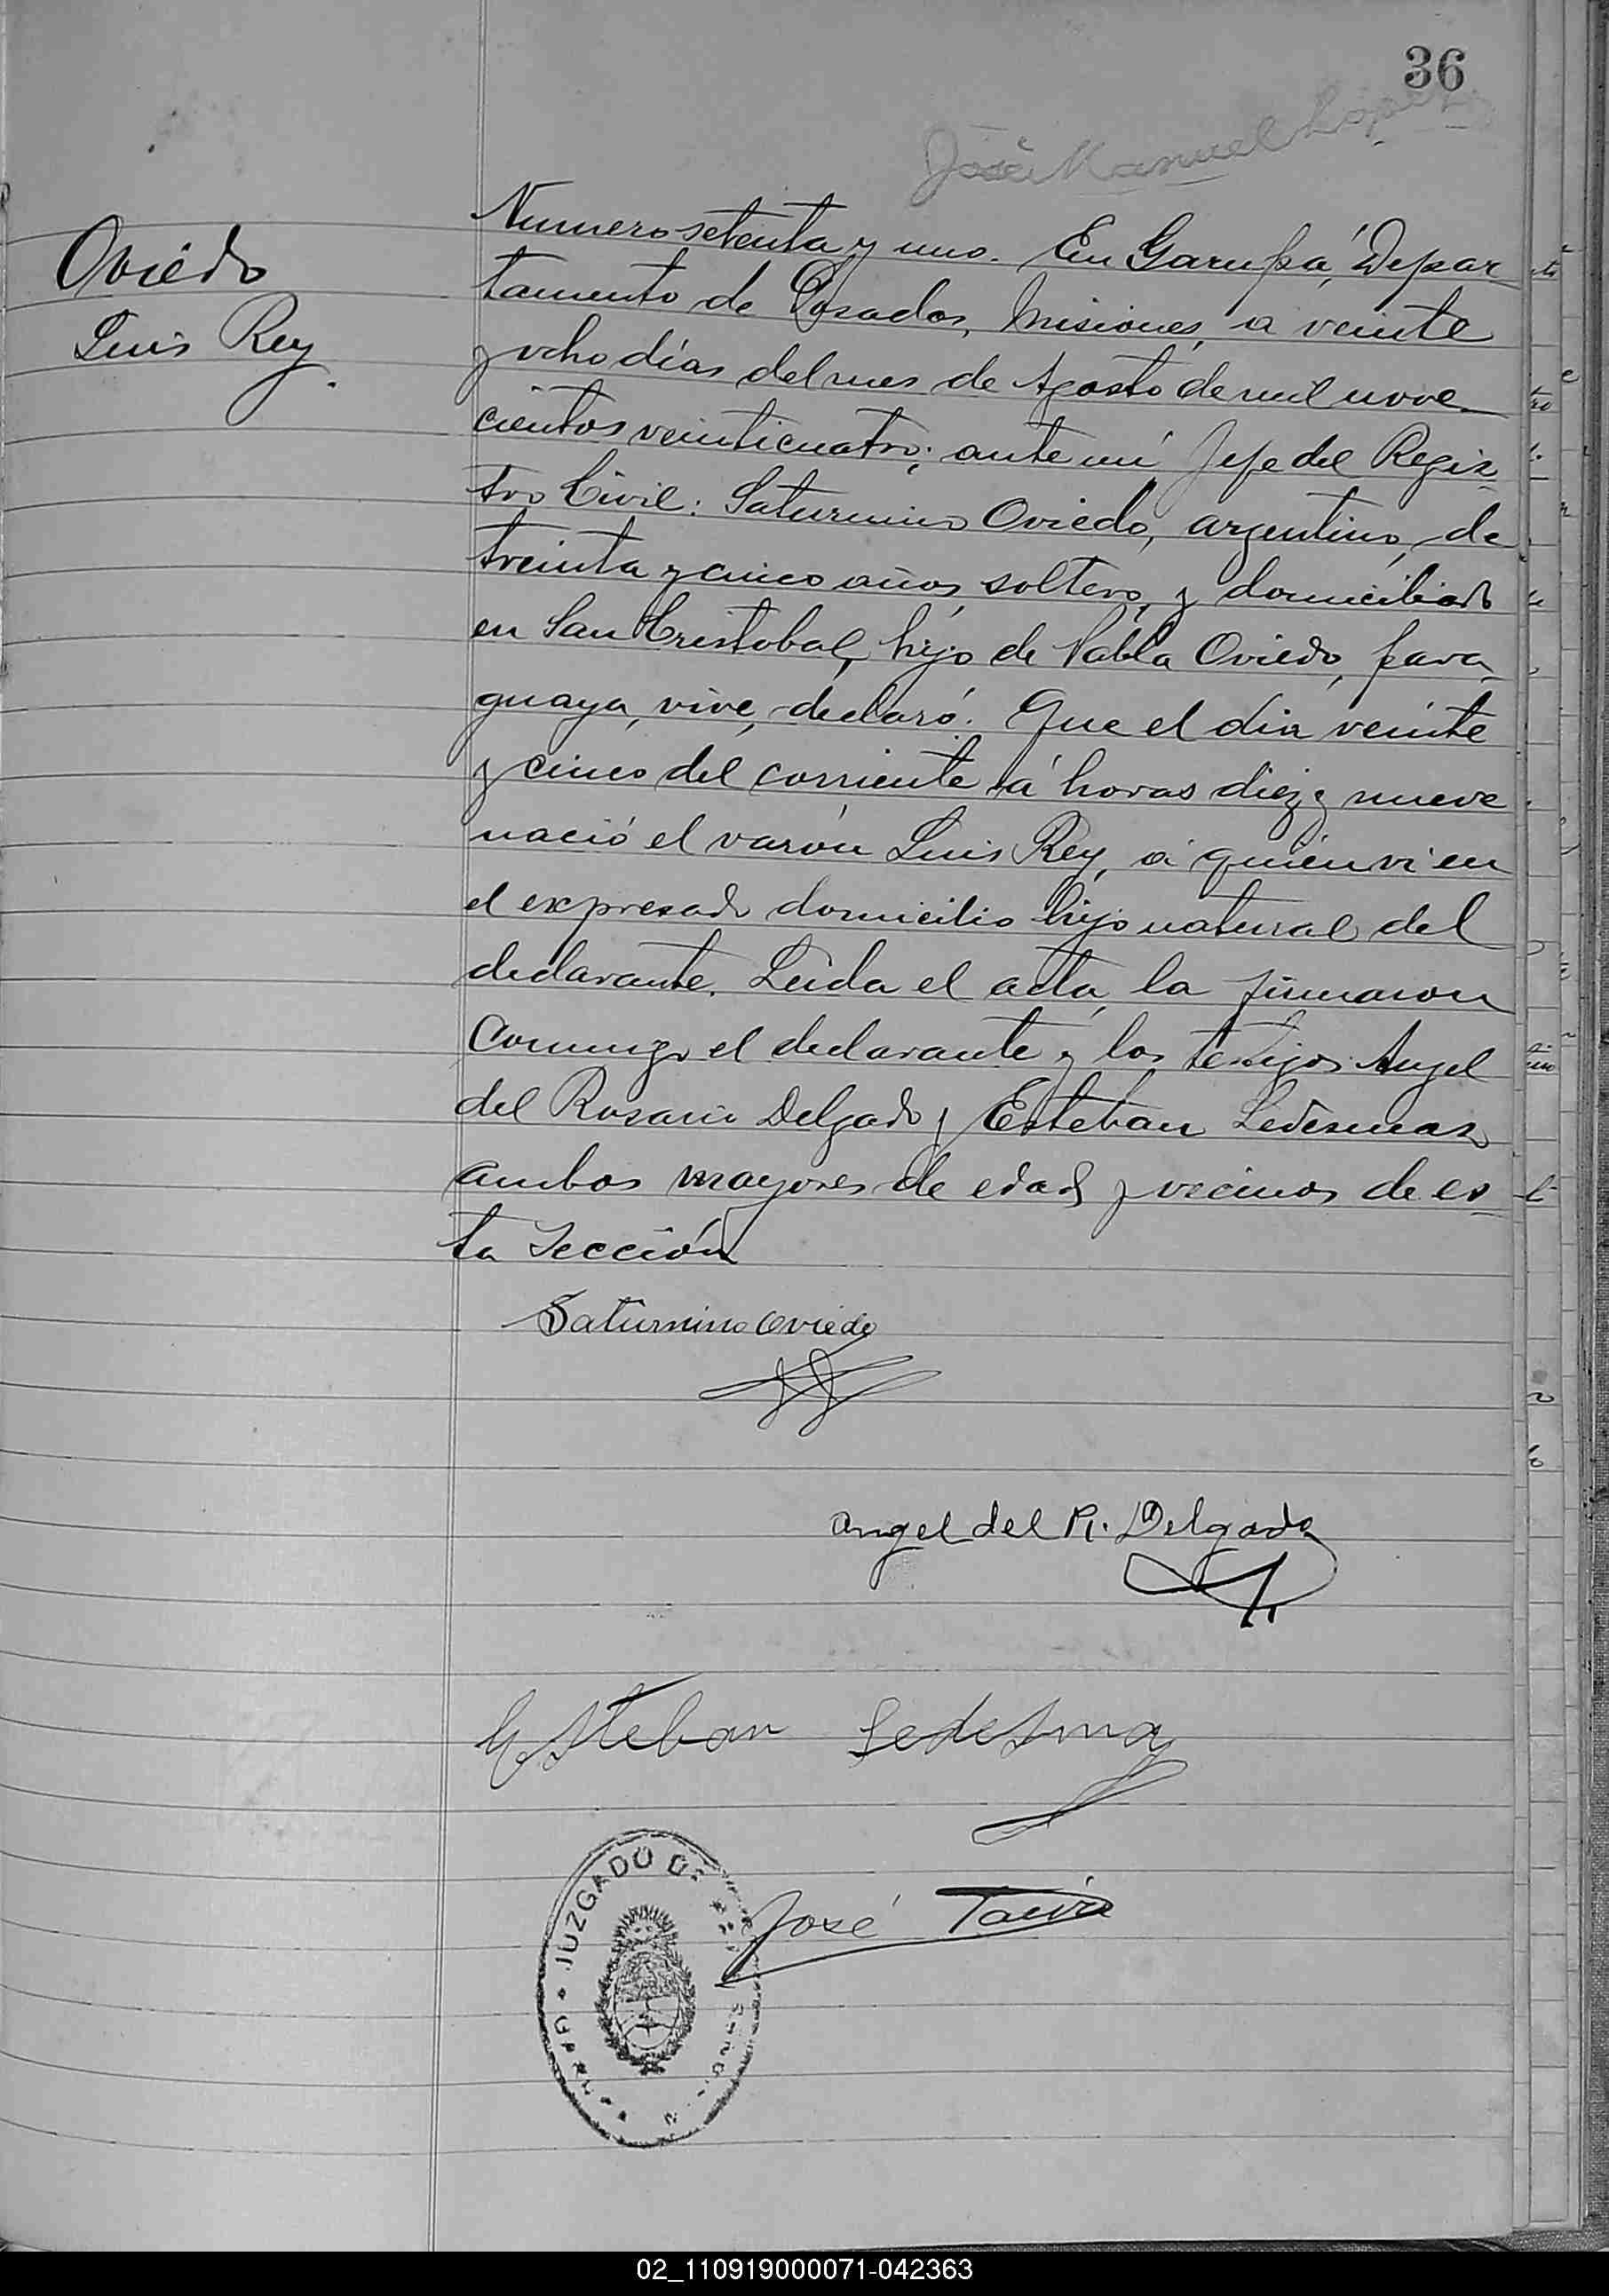 36
José Manuel Lopez
Oviedo
Luis Rey.
Numero setenta y uno. En Garupá, Depar
tamento de Posadas, Misiones, a veinte
y ocho días del mes de Agosto de mil nove
cientos veinticuatro; ante mí Jefe del Regis
tro Civil: Saturnino Oviedo, argentino, de
treinta y cinco años, soltero, y domiciliado
en San Cristobal, hijo de Pabla Oviedo, para
guaya, vive, declaró: Que el día veinte
y cinco del corriente á horas diez y nueve
nació el varón Luis Rey, a quién vi en
el expresado domicilio hijo natural del
declarante. Leida el acta, la firmaron
conmigo el declarante y los testigos Angel
del Rosario Delgado y Esteban Ledesma
ambos mayores de edad y vecinos de es
ta Sección
Saturnino Oviedo
Angel del R. Delgado
Esteban Ledesma
José
JUZGADO DE
02_110919000071-042363